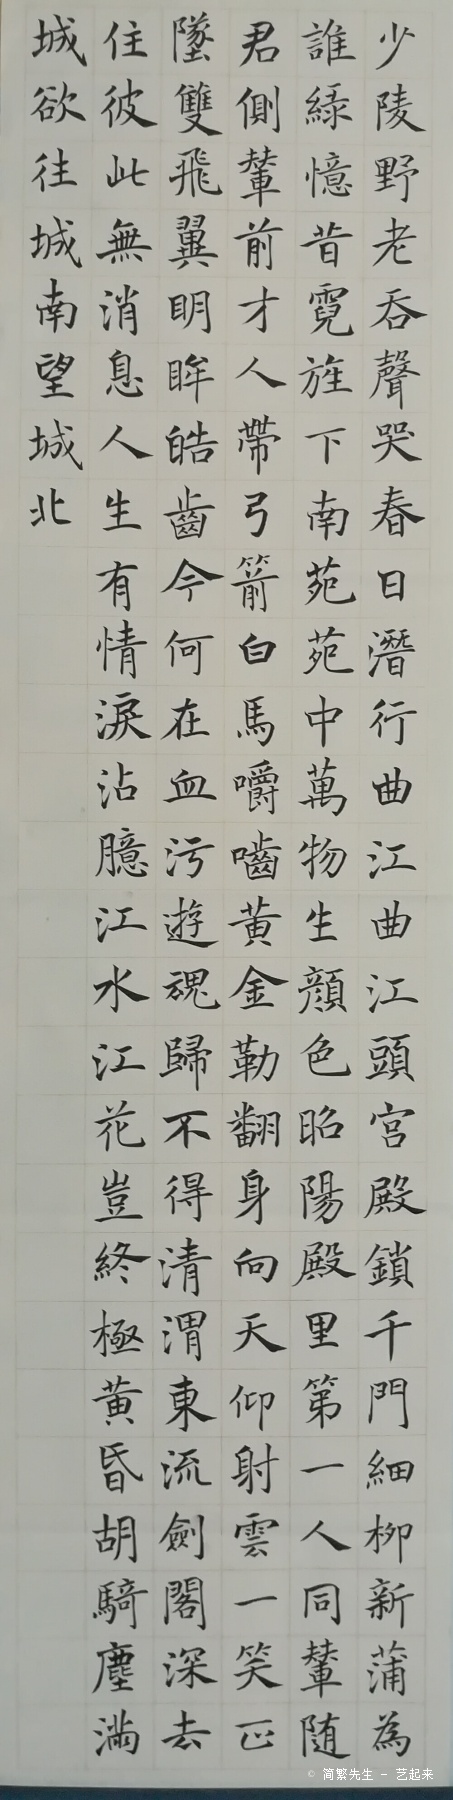 少陵野老吞聲哭春日潛行曲江曲江頭宮殿鎖千門細柳新蒲為
誰綠憶昔霓旌下南苑苑中萬物生顔色昭陽殿里第一人同輦随
君側輦前才人帶弓箭白馬嚼嚙黃金勒翻身向天仰射雲一笑正
墜雙飛翼明眸皓齒今何在血污遊魂歸不得清渭東流劍閣深去
住彼此無消息人生有情淚沾臆江水江花豈終極黃昏胡騎塵滿
城欲往城南望城北
© 简繁先生 - 艺起来